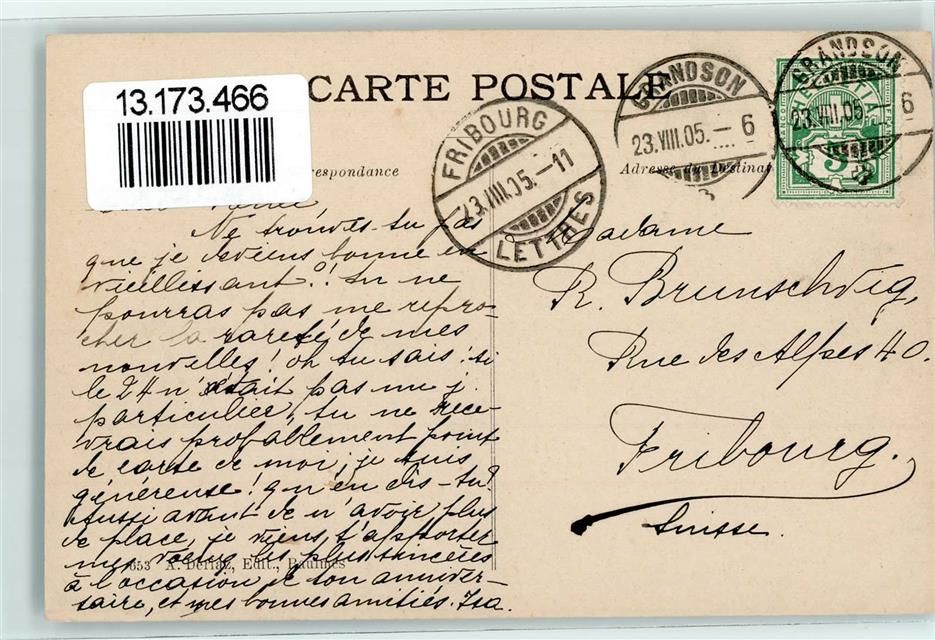 13.173.466
CARTE POSTALE
GRANDSON
23.VIII.05. – 6
GRANDSON
23.VIII.05. – 6
HELVETIA
5
FRIBOURG
23.VIII.05. – 11
LETTRES
respondance
Adresse du Destinat
Ne trouves-tu pas
que je deviens bonne en
vieillissant?! Tu ne
pourras pas me repro-
cher la rareté de mes
nouvelles! oh tu sais! si
le 24 n'était pas un j.
particulier, tu ne rece-
vrais probablement point
de carte de moi; je suis
généreuse! qu'en dis-tu?
Aussi avant de n'avoir plus
de place, je viens t'apporter
mes voeux les plus sincères
à l'occasion de ton anniver-
saire, et mes bonnes amitiés. Isa.
653 A. Deriaz, Edit., Baulmes
Madame
R. Brunschvig,
Rue des Alpes 40.
Fribourg.
Suisse.